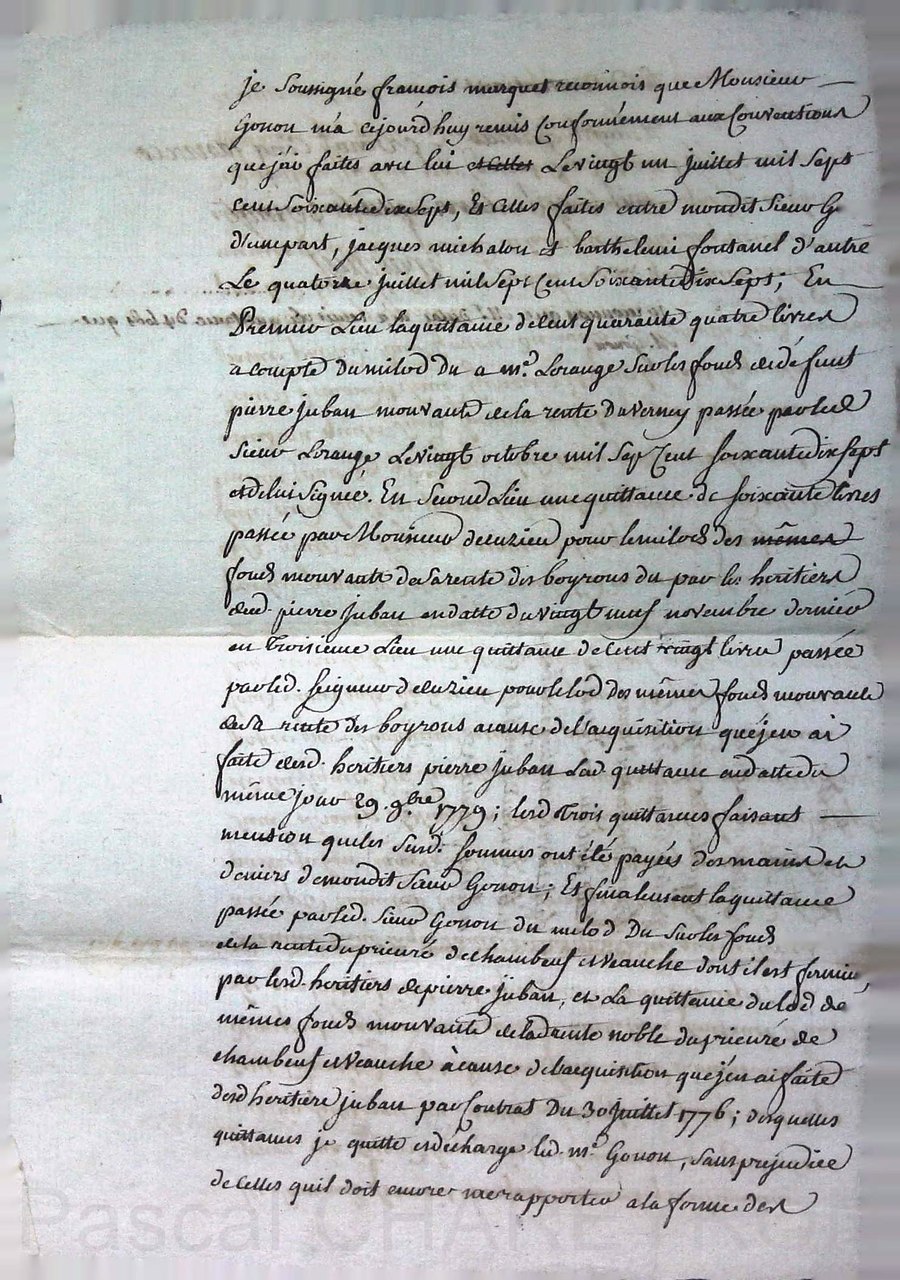 je soussigné francois marquet reconnois que Monsieur
Gonon m'a cejourd'huy remis conformément aux conventions
que j'ai faites avec lui et celles le vingt un juillet mil sept
cent soixante dix sept, et celles faites entre mondit sieur G
d'une part, jacques michalon et barthelemi fontanel d'autre
Le quatorze juillet mil sept cent soixante dix sept; En
Premier Lieu la quittance de cent quarante quatre livres
a compte du milod du a mr. Lorange sur les fonds de défunt
pierre juban mouvants de la rente du verney passée par led
sieur Lorange le vingt octobre mil sept cent soixante dix sept
et de lui signée. En second Lieu une quittance de soixante livres
passée par Monsieur deluzieu pour le milod des mêmes
fonds mouvants de sa rente des boyrons du par les heritiers
dud. pierre juban en datte du vingt neuf novembre dernier
en Troisieme Lieu une quittance de cent vingt livres passée
par led. seigneur deluzieu pour le lod des mêmes fonds mouvants
de sa rente des boyrons a cause de l'acquisition que j'en ai
faite desd. heritiers pierre juban lad. quittance en datte du
même jour 29. 9bre 1779; lesd. trois quittances faisant
mention que les susd. sommes ont été payées des mains et
deniers de mondit sieur Gonon; Et finalement la quittance
passée par led. sieur Gonon du milod du sur les fonds
de la rente du prieuré de chambeuf et veauche dont il est fermier
par lesd. heritiers de pierre juban, et la quittance du lod de
mêmes fonds mouvants de lad. rente noble du prieuré de
chambeuf et veauche à cause de l'acquisition que j'en ai faite
desd heritiers juban par contrat du 30 juillet 1776; desquelles
quittances je quitte et décharge led. mr. Gonon, sans prejudice
de celles qu'il doit encore me rapporter a la forme des
Pascal CHARE